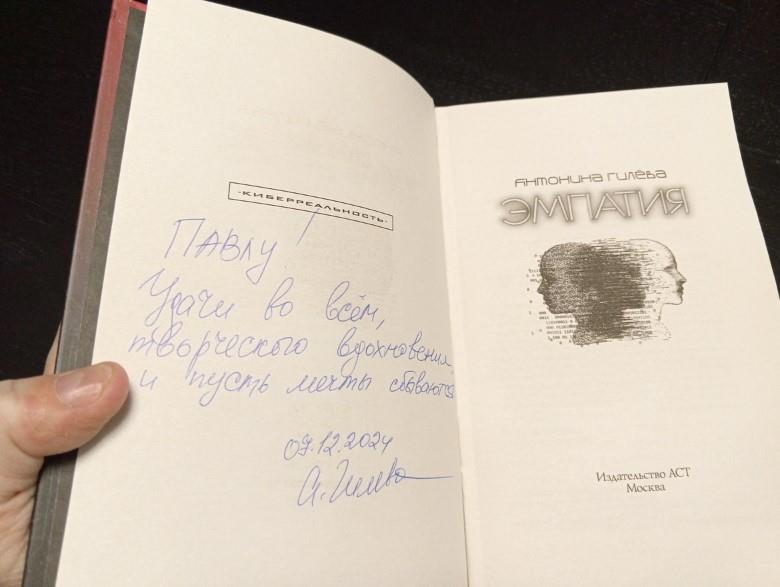 ·КИБЕРРЕАЛЬНОСТЬ·
ПАВЛУ!
Удачи во всём,
творческого вдохновения
и пусть мечты сбываются
07.12.2024
А. Гилева
АНТОНИНА ГИЛЁВА
ЭМПАТИЯ
Издательство АСТ
Москва